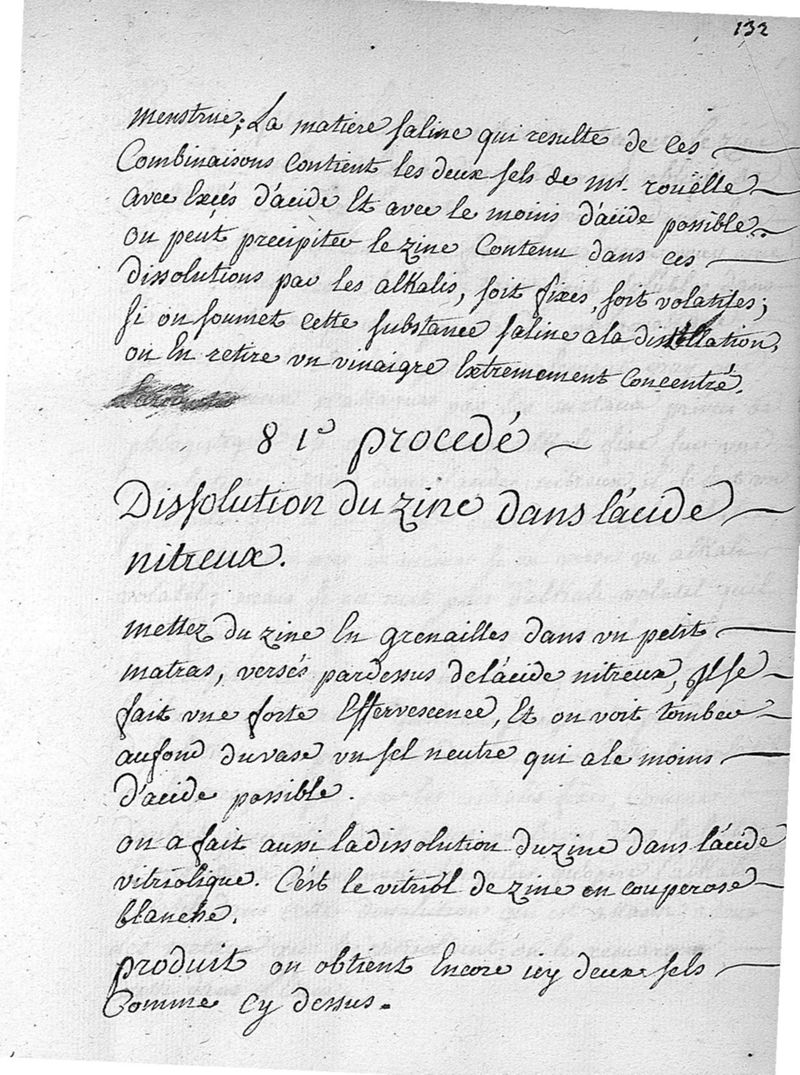 132
menstrue; La matiere saline qui resulte de ces
Combinaisons contient les deux sels de mr. rouëlle
avec Excés d'acide Et avec le moins d'acide possible.
on peut precipiter le zinc Contenu dans ces
dissolutions par les alkalis, soit fixes, soit volatiles;
si on soumet cette substance saline a la distillation,
on En retire vn vinaigre Extremement concentré.
81e procedé
Dissolution du zinc dans l'acide
nitreux.
mettez du zinc En grenailles dans vn petit
matras, versés pardessus de l'acide nitreux, Il se
fait vne forte Effervescence, Et on voit tomber
au fond du vase vn sel neutre qui a le moins
d'acide possible.
on a fait aussi la dissolution du zinc dans l'acide
vitriolique. C'est le vitriol de zinc ou couperose
blanche.
produit on obtient Encore icy deux sels
Comme Cy dessus.